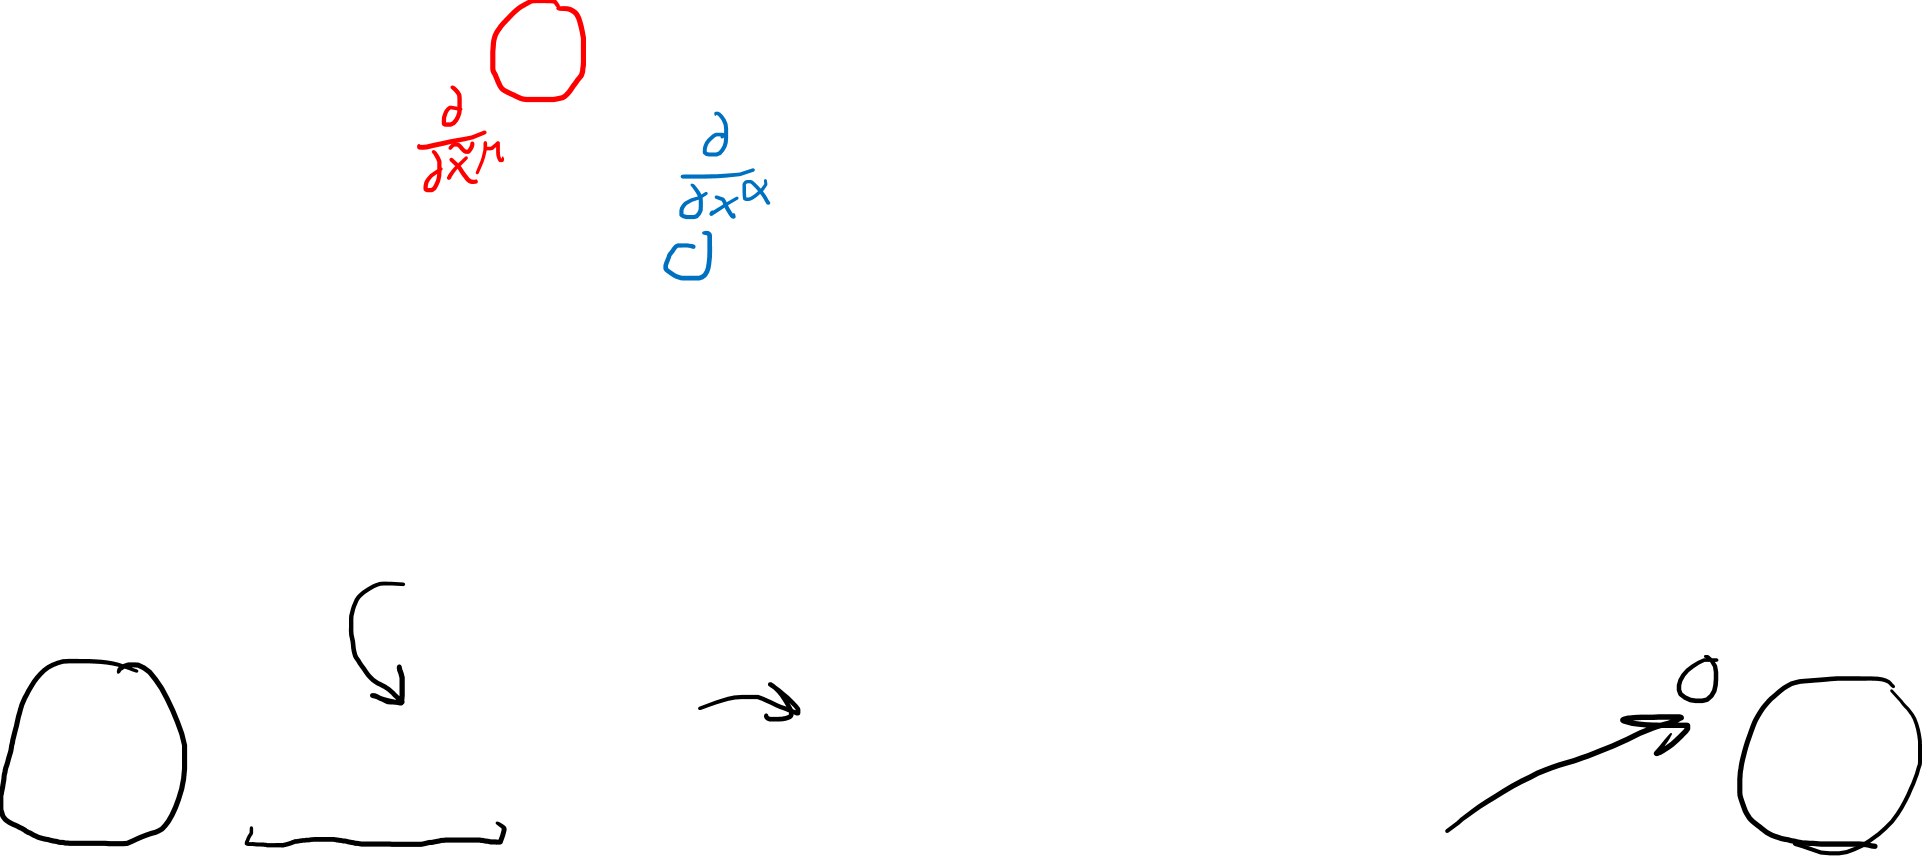 ∂/∂x̃^μ
∂/∂x^α